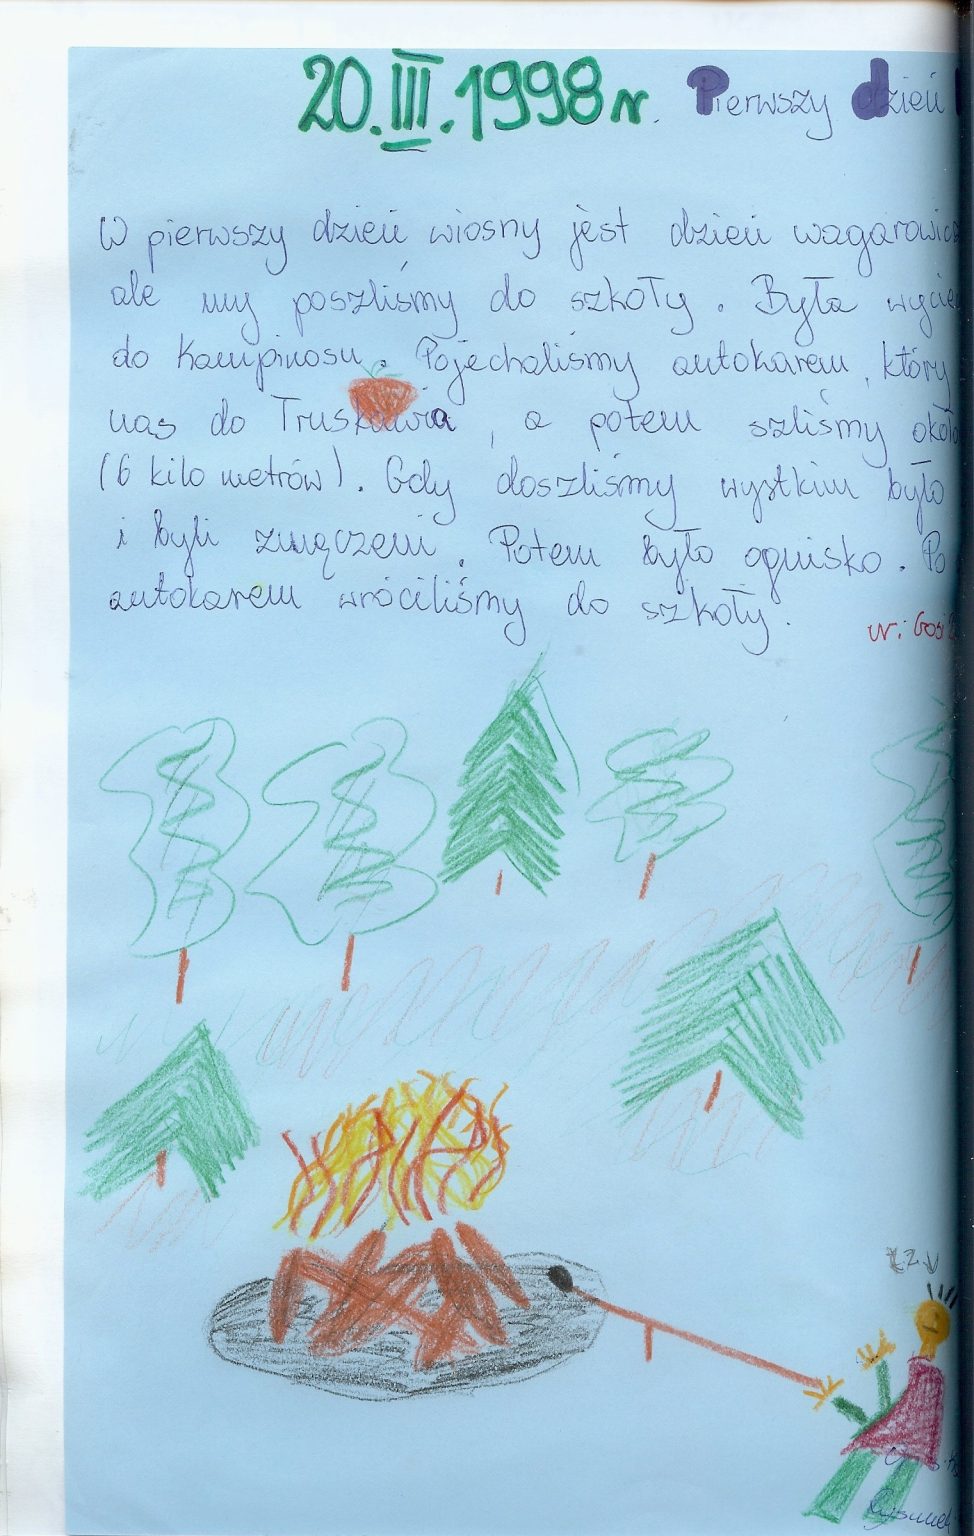 20.III.1998r. Pierwszy dzień
W pierwszy dzień wiosny jest dzień
ale my poszliśmy do szkoły. Była
do Kampinosu. Pojechaliśmy autokarem, który
nas do Truskawia, a potem szliśmy
(6 kilo metrów). Gdy doszliśmy wystkim było
i byli zmęczeni. Potem było ognisko. Po
autokarem wróciliśmy do szkoły.